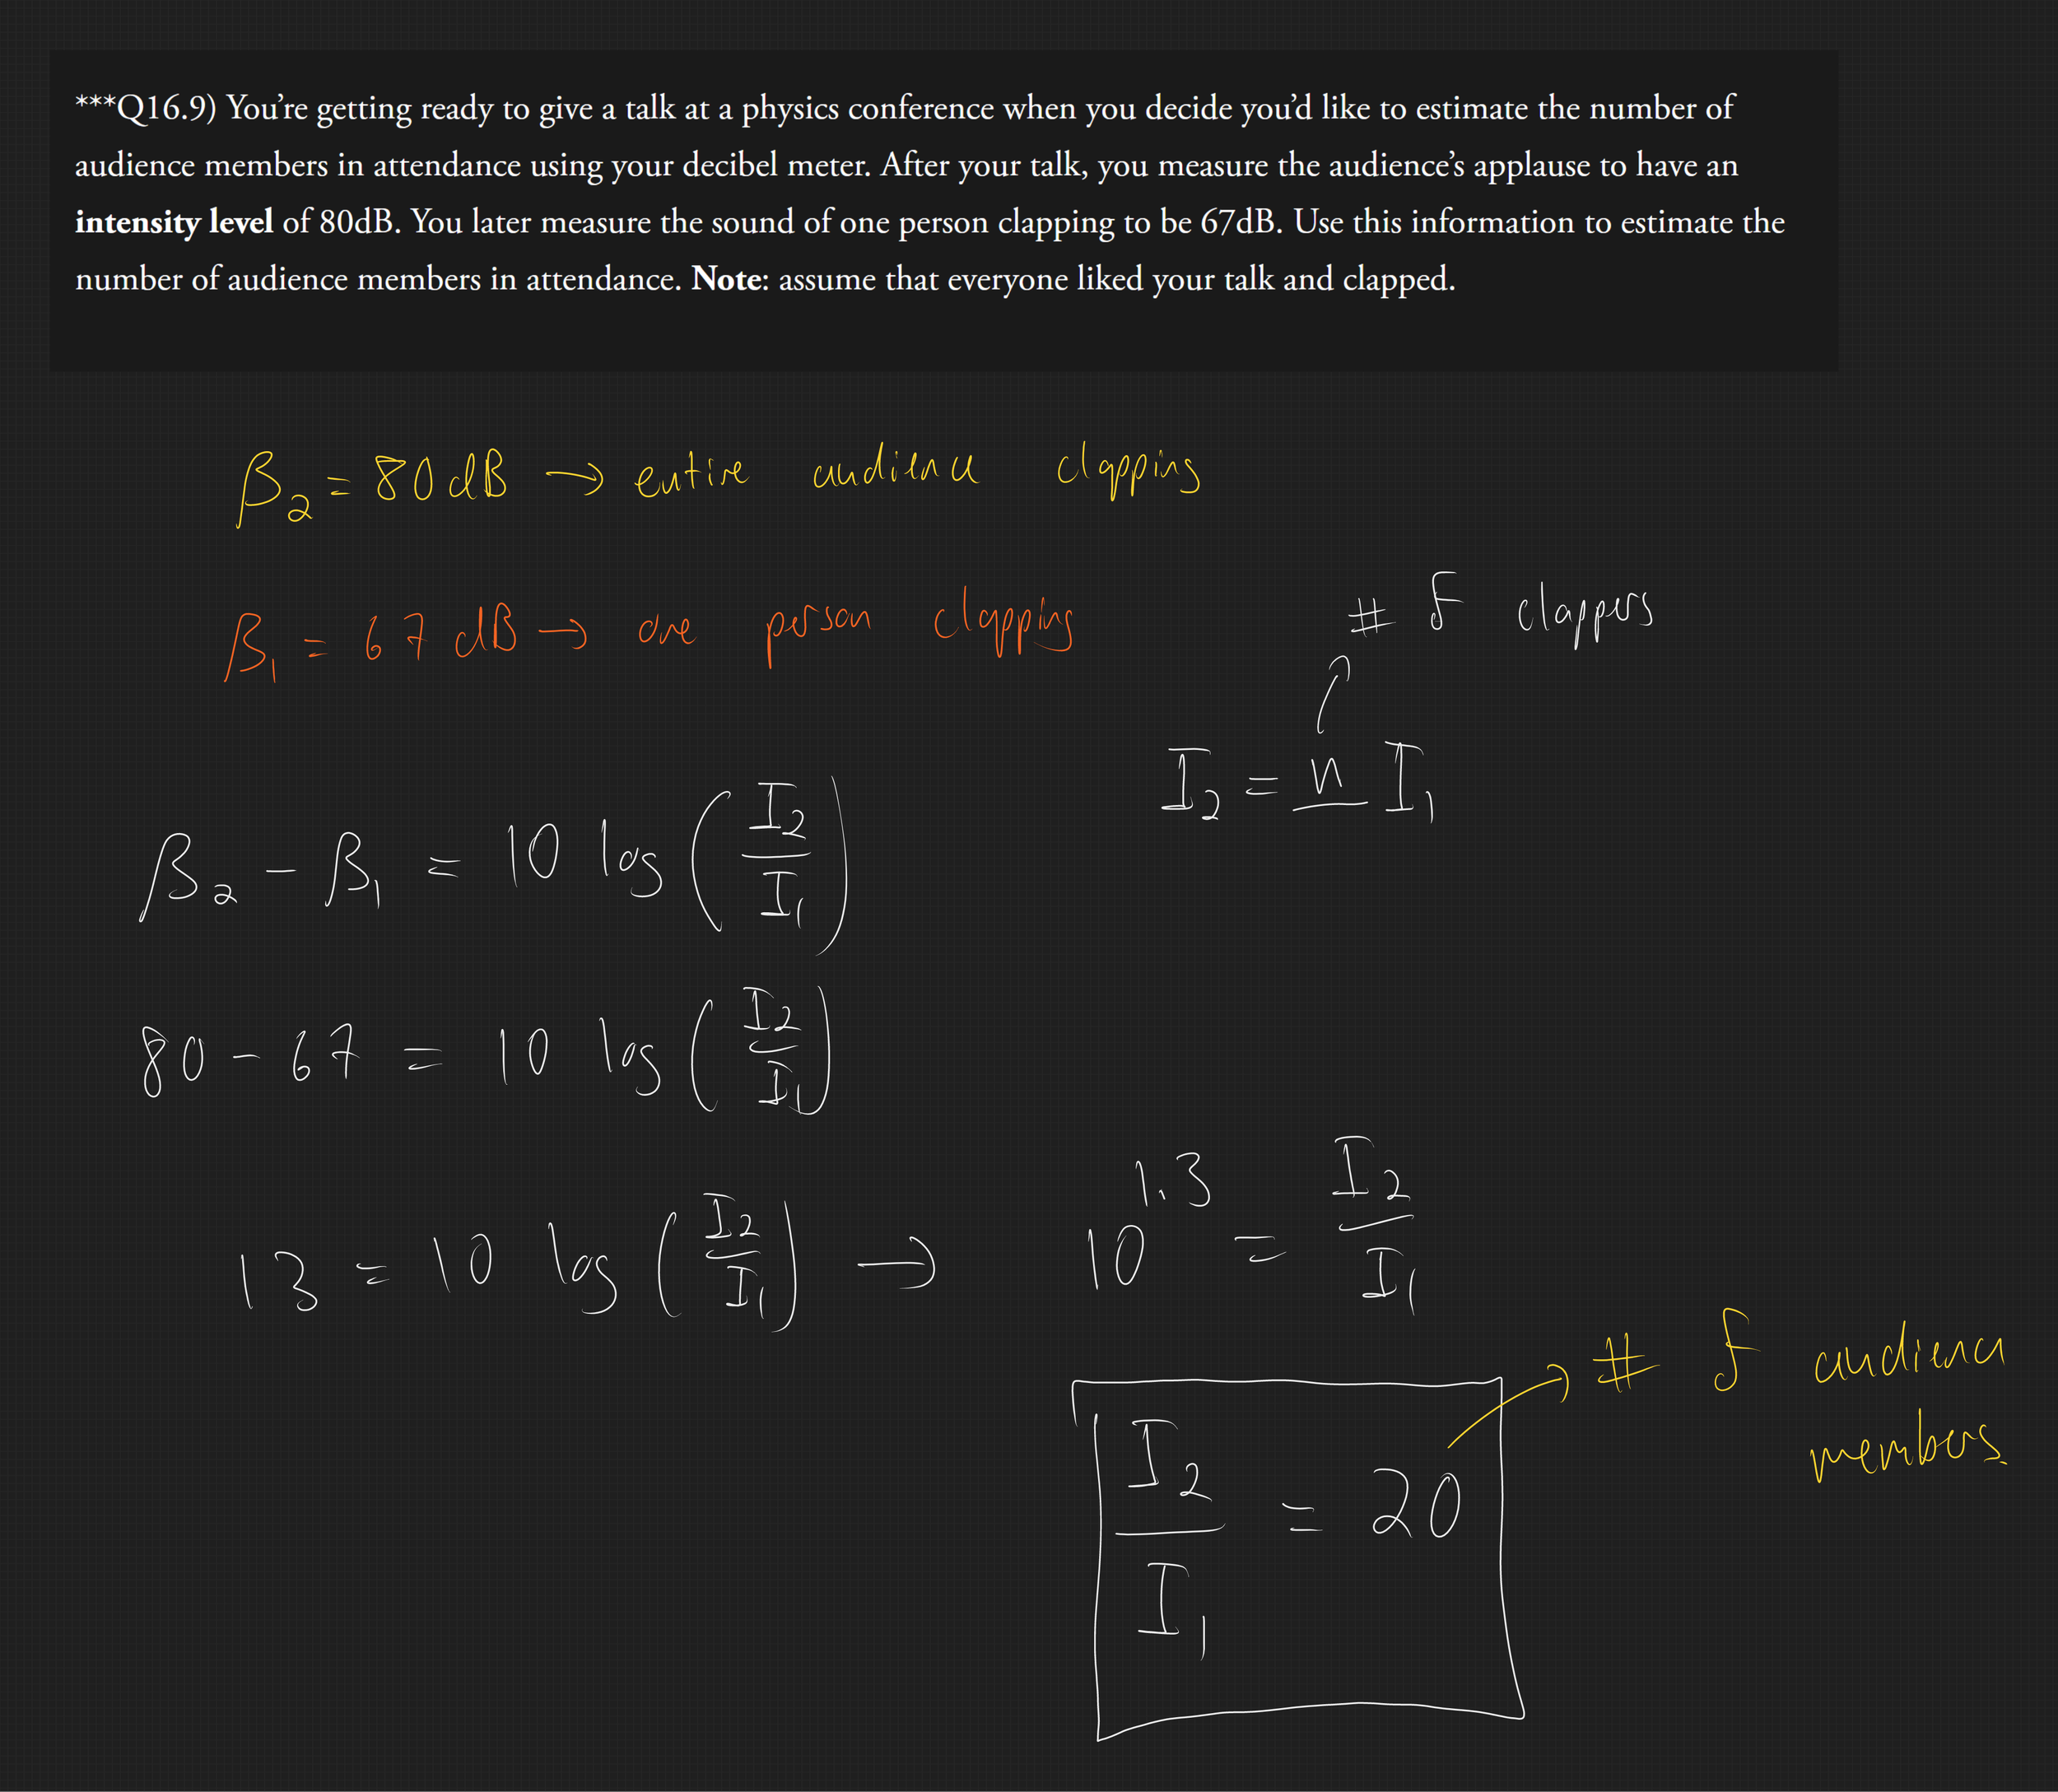 ***Q16.9) You're getting ready to give a talk at a physics conference when you decide you'd like to estimate the number of
audience members in attendance using your decibel meter. After your talk, you measure the audience's applause to have an
intensity level of 80dB. You later measure the sound of one person clapping to be 67dB. Use this information to estimate the
number of audience members in attendance. Note: assume that everyone liked your talk and clapped.
β₂ = 80 dB → entire audience clapping
β₁ = 67 dB → one person clapping
# of clappers
I₂ = n I₁
β₂ - β₁ = 10 log (I₂/I₁)
80 - 67 = 10 log (I₂/I₁)
13 = 10 log (I₂/I₁) → 10^1.3 = I₂/I₁
I₂/I₁ = 20
# of audience
members